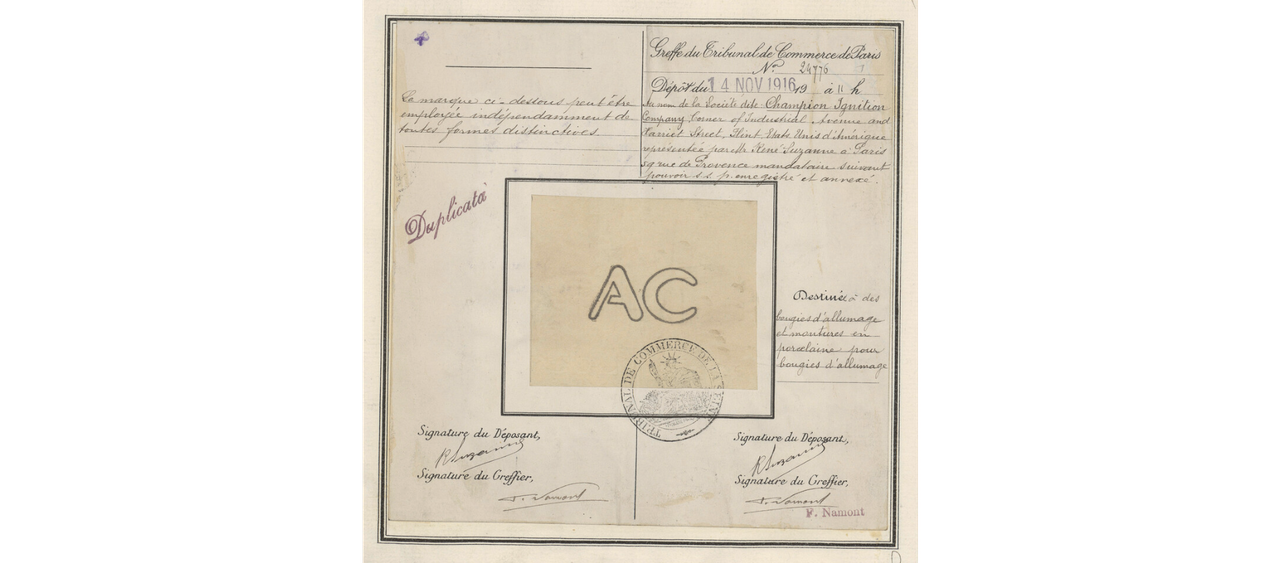 Greffe du Tribunal de Commerce de Paris
No. 24776
Dépôt du 14 NOV 1916 19 à 11 h
La marque ci-dessous peut être
employée indépendamment de
toutes formes distinctives.
Au nom de la Société dite Champion Ignition
Company, Corner of Industrial Avenue and
Harriet Street, Flint, Etats Unis d'Amérique
représentée par Mr René Suzanne à Paris
59 rue de Provence mandataire suivant
pouvoir s.s. p. enregistré et annexé.
Duplicata
AC
TRIBUNAL DE COMMERCE DE LA SEINE
Destinée à des
bougies d'allumage
et montures en
porcelaine pour
bougies d'allumage
Signature du Déposant,
R Suzanne
Signature du Greffier,
F. Namont
Signature du Déposant,
R Suzanne
Signature du Greffier,
F. Namont
F. Namont